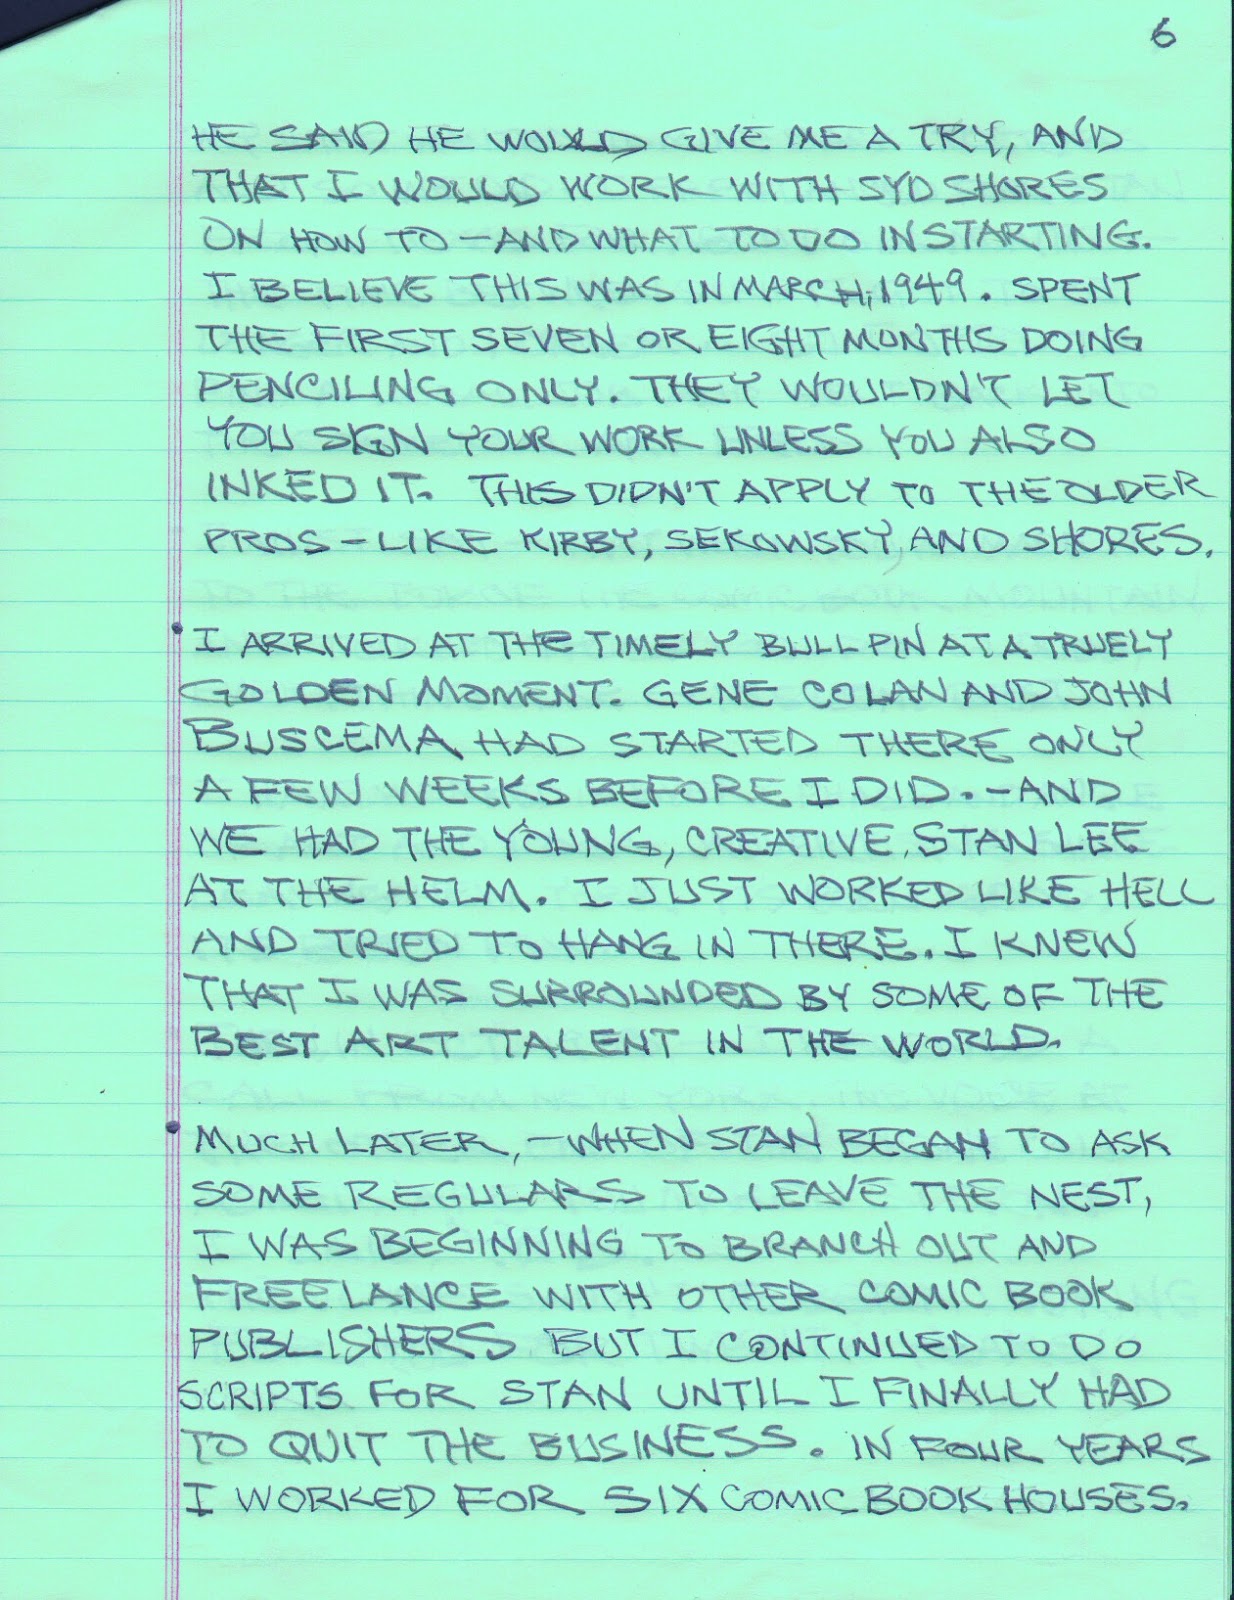 6
HE SAID HE WOULD GIVE ME A TRY, AND
THAT I WOULD WORK WITH SYD SHORES
ON HOW TO - AND WHAT TO DO IN STARTING.
I BELIEVE THIS WAS IN MARCH, 1949. SPENT
THE FIRST SEVEN OR EIGHT MONTHS DOING
PENCILING ONLY. THEY WOULDN'T LET
YOU SIGN YOUR WORK UNLESS YOU ALSO
INKED IT. THIS DIDN'T APPLY TO THE OLDER
PROS - LIKE KIRBY, SEKOWSKY, AND SHORES.
• I ARRIVED AT THE TIMELY BULL PIN AT A TRUELY
GOLDEN MOMENT. GENE COLAN AND JOHN
BUSCEMA HAD STARTED THERE ONLY
A FEW WEEKS BEFORE I DID. - AND
WE HAD THE YOUNG, CREATIVE, STAN LEE
AT THE HELM. I JUST WORKED LIKE HELL
AND TRIED TO HANG IN THERE. I KNEW
THAT I WAS SURROUNDED BY SOME OF THE
BEST ART TALENT IN THE WORLD.
• MUCH LATER, - WHEN STAN BEGAN TO ASK
SOME REGULARS TO LEAVE THE NEST,
I WAS BEGINNING TO BRANCH OUT AND
FREELANCE WITH OTHER COMIC BOOK
PUBLISHERS BUT I CONTINUED TO DO
SCRIPTS FOR STAN UNTIL I FINALLY HAD
TO QUIT THE BUSINESS. IN FOUR YEARS
I WORKED FOR SIX COMIC BOOK HOUSES.